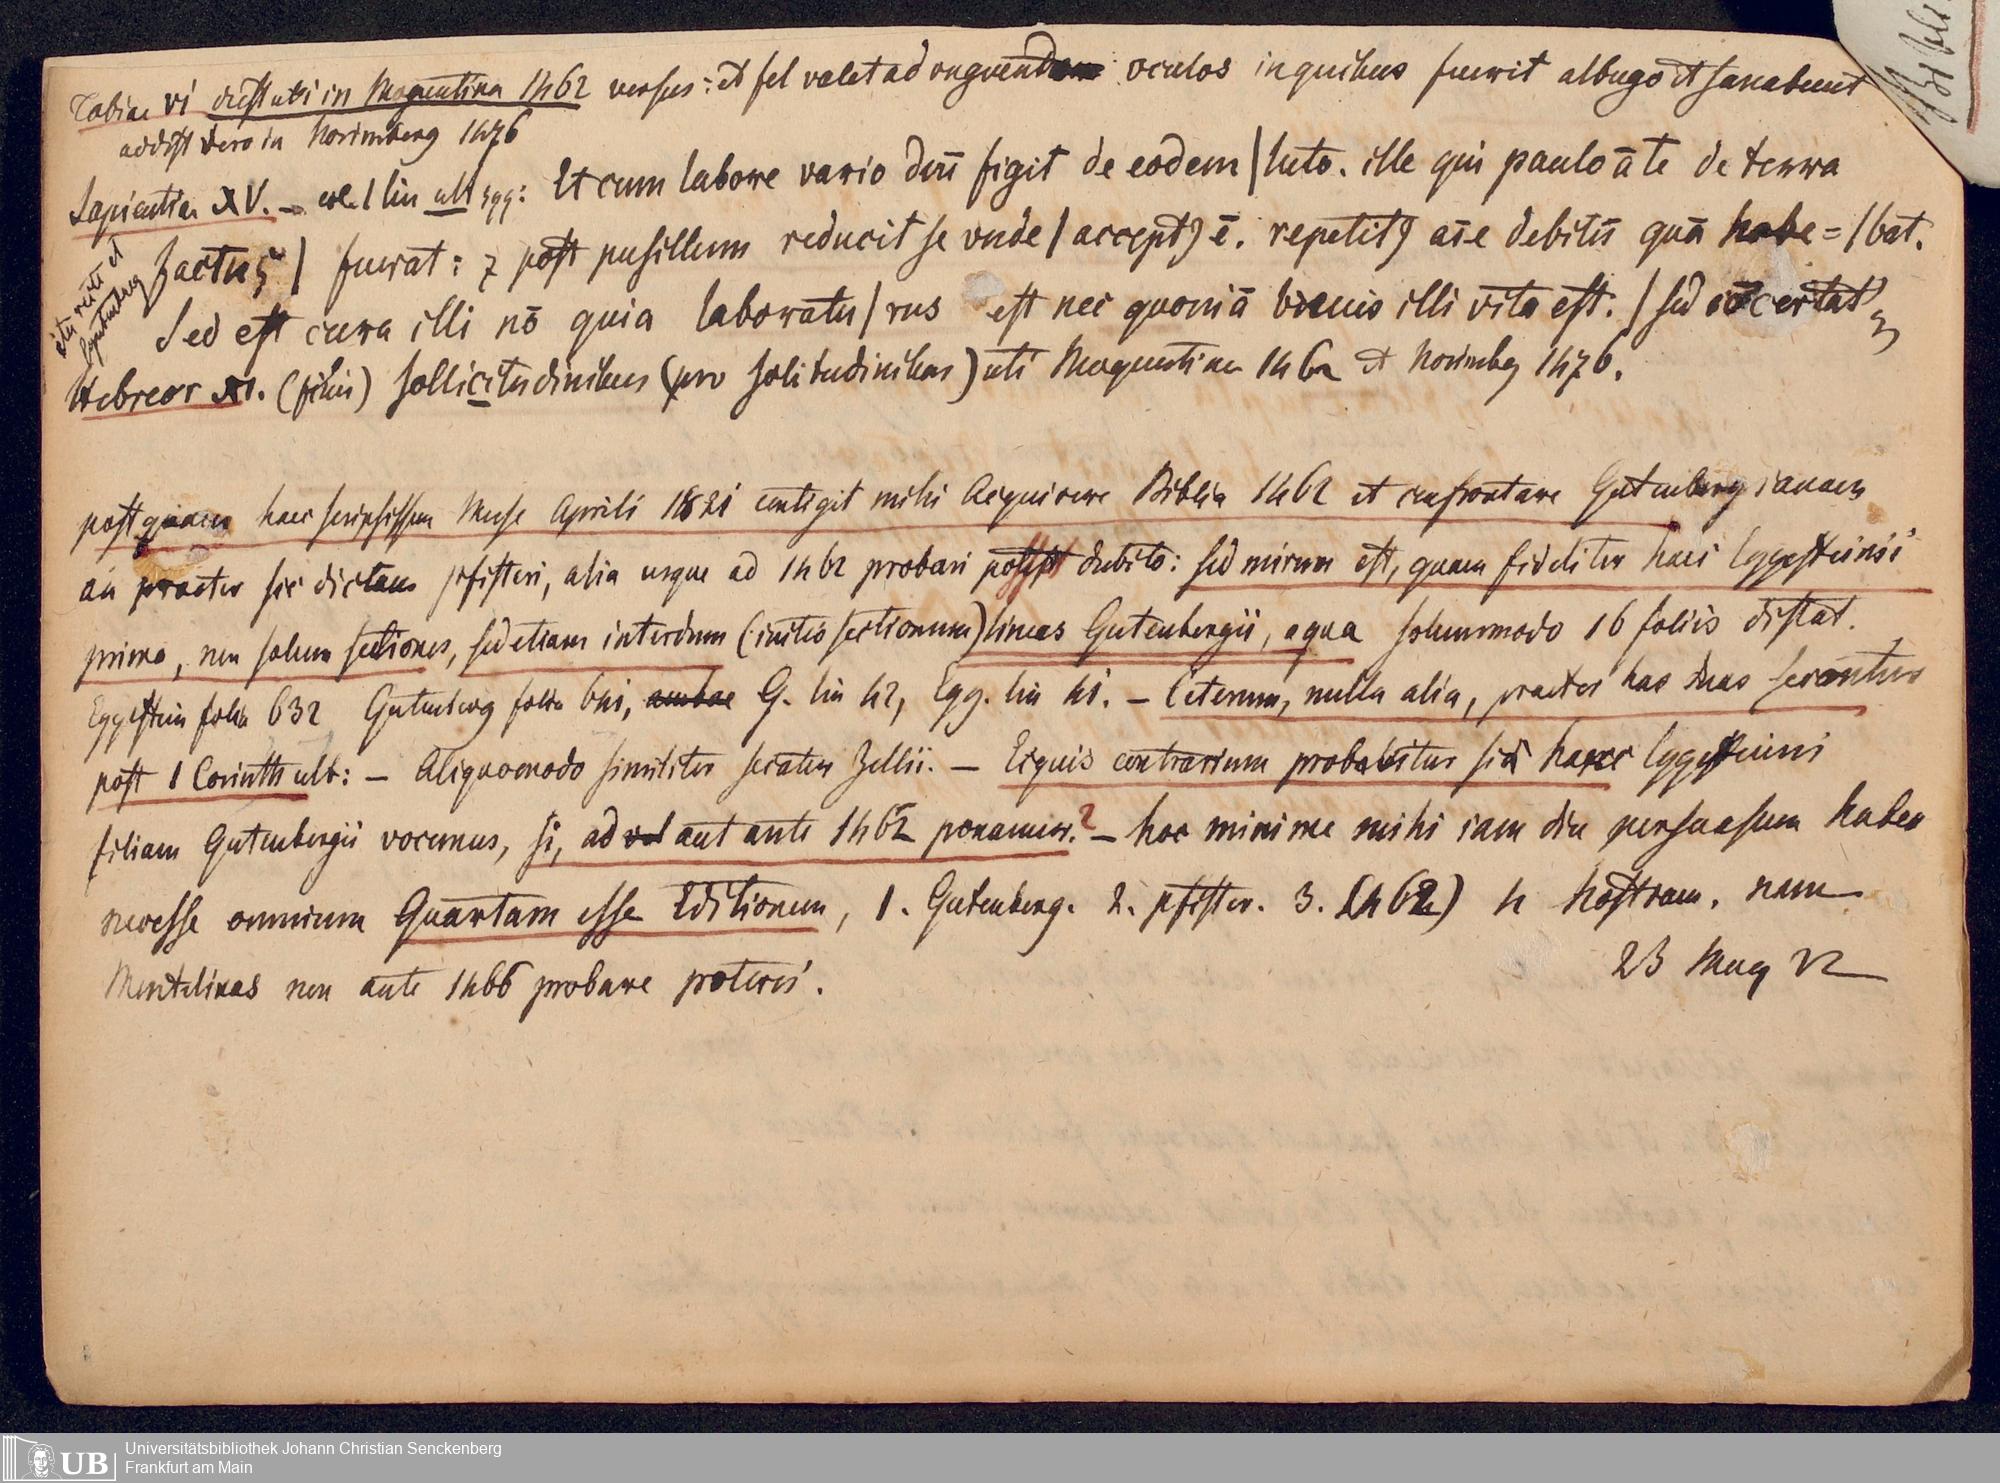 Tobiae vi deest uti in Moguntina 1462 versus: et fel valet ad unguend oculos in quibus fuerit albugo et sanabunt
adest vero in Norimberg 1476
Sapientiae XV. – col. 1 lin ult sqq: Et cum labore vario deū figit de eodem | luto. ille qui paulo āte de terra
factus | fuerat: z post pusillum reducit se vnde | accept9 ē. repetit9 aīe debitū quā habe= | bat.
ita recte et
Gutenberg
Sed est cura illi nō quia laboratu | rus est nec quoniā breuis illi vita est. | sed cōcertat
Hebreor XI. (finis) sollicitudinibus (pro solitudinibus) uti Moguntina 1462 et Norimbeg 1476.
postquam haec scripsissem Mense Aprili 1821 contigit mihi Acquirere Biblia 1462 et confrontare Gutenbergianam
an praeter sic dictam Pfisteri, alia usque ad 1462 probari possit dubito: sed mirum est, quam fideliter haec Eggesteinii
prima, non solum sectiones, sed etiam interdum (initio sectionum) lineas Gutenbergii, a qua solummodo 16 foliis distat.
Eggestein folia 632 Gutenberg folia 641, ambae G. lin 42, Egg. lin 41. – Ceterum, nulla alia, praeter has duas
post 1 Corinth ult: – Aliquomodo similiter Zellii. – Ecquis contrarium probabitur si haec Eggesteinii
filiam Gutenbergii vocemus, si, ad vel aut ante 1462 ponamus? – hoc minime mihi iam diu persuasum habeo
necesse omnium Quartam esse Editionem, 1. Gutenberg. 2. Pfister. 3. (1462) 4 nostram. nam
Mentelinas non ante 1466 probare poteris.
23 May 22
Universitätsbibliothek Johann Christian Senckenberg
Frankfurt am Main
UB